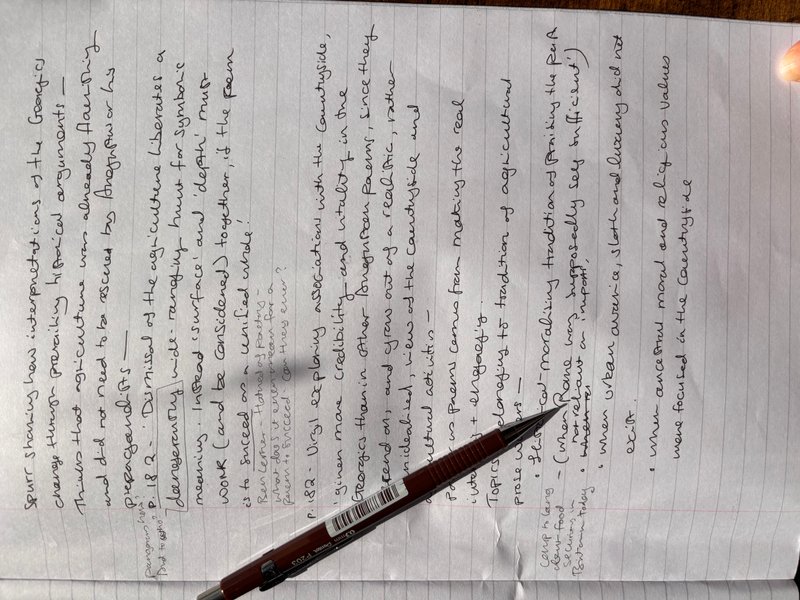 Spurr showing how interpretations of the Georgics
change through prevailing historical arguments —
Thinks that agriculture was already flourishing
and did not need to be rescued by Augustus or his
propagandists —
p. 182 - 'Dismissal of the agriculture liberates a
dangerously wide-ranging hunt for symbolic
meaning. Instead 'surface' and 'depth' must
work (and be considered) together, if the poem
is to succeed as a unified whole'
Ben Lerner - Hatred of Poetry -
what does it even mean for a
poem to succeed can they ever?
Dangerous how?
p. 182 - Virgil exploring associations with the countryside,
'given more credibility and vitality in the
Georgics than in other Augustan poems, since they
depend on, and grow out of a realistic, rather
idealised, view of the countryside and
agricultural activities -
poems comes from making the real
+ engaging.
Topics belonging to tradition of agricultural
prose writers —
• moralising tradition of praising the past
(when Rome was supposedly self sufficient')
not reliant on imports,
• when urban avarice, sloth and luxury did not
exist.
• when ancestral moral and religious values
were focused in the countryside
food
Britain today
0.5mm Pentel P205